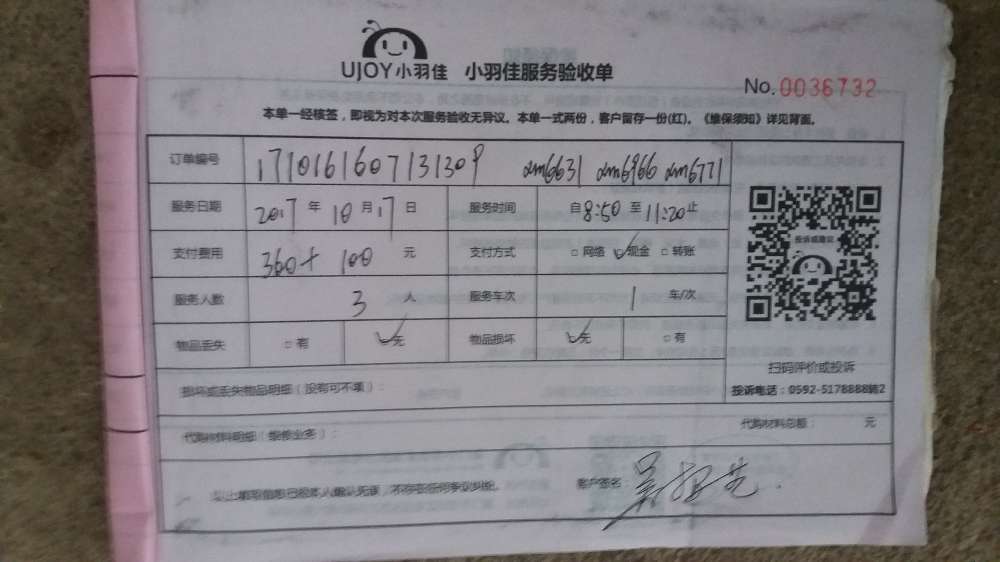 UJOY小羽佳 小羽佳服务验收单
No. 0036732
本单一经核签，即视为对本次服务验收无异议。本单一式两份，客户留存一份(红)。《维保须知》详见背面。
订单编号 1710161607131309 xm6631 xm6966 xm6771
服务日期 2017年10月17日 服务时间 自8:50至11:20止
投诉或建议
支付费用 360+100 元 支付方式 □网络 ☑现金 □转账
服务人数 3 人 服务车次 1 车/次
物品丢失 □有 ☑无 物品损坏 ☑无 □有
扫码评价或投诉
损坏或丢失物品明细（没有可不填）：
投诉电话：0592-5178888转2
代购材料明细（维修业务）：
代购材料总额： 元
以上填写信息已经本人确认无误，不存在任何争议纠纷。 客户签名：